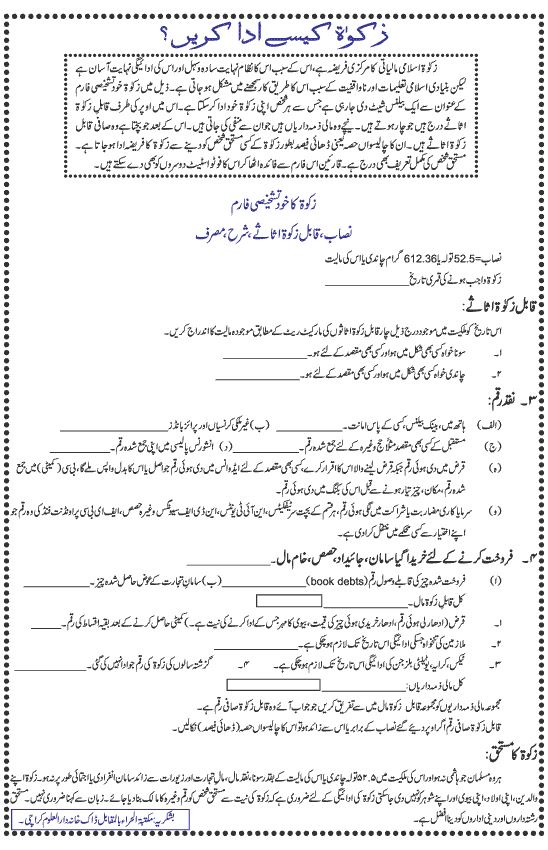 زکوٰۃ کیسے ادا کریں؟
زکوٰۃ اسلامی مالیاتی کا مرکزی فریضہ ہے، اس کے سبب اس کا نظام نہایت سادہ و سہل اور اس کی ادائیگی نہایت آسان ہے
لیکن بنیادی اسلامی تعلیمات اور ناواقفیت کے سبب اس کا طریق کار سمجھنے میں مشکل ہو جاتی ہے۔ ذیل میں زکوٰۃ تشخیصی فارم
کے عنوان سے ایک بیلنس شیٹ دی جا رہی ہے جس سے ہر شخص اپنی زکوٰۃ خود ادا کر سکتا ہے۔ اس میں اوپر کی طرف قابل زکوٰۃ
اثاثے درج ہیں جو چار ہوتے ہیں۔ نیچے وہ مالی ذمہ داریاں ہیں جو ان سے منفی کی جاتی ہیں۔ اس کے بعد جو بچتا ہے وہ صافی قابل
زکوٰۃ اثاثے ہیں۔ ان کا چالیسواں حصہ یعنی ڈھائی فیصد بطور زکوٰۃ کے کسی مستحق شخص کو دینے سے زکوٰۃ کا فریضہ ادا ہو جاتا ہے۔
مستحق شخص کی مکمل تعریف بھی درج ہے۔ قارئین اس فارم سے فائدہ اٹھا کر اس کا فوٹو اسٹیٹ دوسروں کو بھی دے سکتے ہیں۔
زکوٰۃ کا خود تشخیصی فارم
نصاب، قابل زکوٰۃ اثاثے، شرح، مصرف
نصاب=52.5 تولہ یا 612.36 گرام چاندی یا اس کی مالیت
زکوٰۃ واجب ہونے کی قمری تاریخ
قابل زکوٰۃ اثاثے:
اس تاریخ کو ملکیت میں موجود درج ذیل چار قابل زکوٰۃ اثاثوں کی مارکیٹ ریٹ کے مطابق موجودہ مالیت کا اندراج کریں۔
۱۔ سونا خواہ کسی بھی شکل میں ہو اور کسی بھی مقصد کے لئے ہو۔
۲۔ چاندی خواہ کسی بھی شکل میں ہو اور کسی بھی مقصد کے لئے ہو۔
۳۔ نقد رقم:
(الف) ہاتھ میں، بینک بیلنس، کسی کے پاس امانت۔ (ب) غیر ملکی کرنسیاں اور پرائز بانڈز
(ج) مستقبل کے کسی بھی مقصد مثلاً حج وغیرہ کے لئے جمع شدہ رقم۔ (د) انشورنس پالیسی میں اپنی جمع شدہ رقم۔
(ہ) قرض میں دی ہوئی رقم جبکہ قرض لینے والا اس کا اقرار کرے، کسی بھی مقصد کے لئے ایڈوانس میں دی ہوئی رقم جو اصل یا اس کا بدل واپس ملے گا، بی سی (کمیٹی) میں جمع
شدہ رقم، مکان، چیز تیار ہونے سے قبل اس کی بکنگ میں دی ہوئی رقم۔
(و) سرمایا کاری مضاربت یا شراکت میں لگی ہوئی رقم، ہر قسم کے بچت سرٹیفکیٹس، این آئی ٹی یونٹس، این ڈی ایف سیونگس وغیرہ حصص، ایف ای بی سی پراونڈنٹ فنڈ کی وہ رقم جو
اپنے اختیار سے کسی محکمے میں منتقل کرا دی ہے۔
۴۔ فروخت کرنے کے لئے خریدا گیا سامان، جائیداد، حصص، خام مال۔
(ا) فروخت شدہ چیز کی قابلِ وصول رقم (book debts) (ب) سامان تجارت کے عوض حاصل شدہ چیز۔
کل قابل زکوٰۃ مال۔
۱۔ قرض (ادھار لی ہوئی رقم، ادھار خریدی ہوئی چیز کی قیمت، بیوی کا مہر جس کے ادا کرنے کی نیت ہے۔) کمیٹی حاصل کرنے کے بعد بقیہ اقساط کی رقم۔
۲۔ ملازمین کی تنخواہ جسکی ادائیگی اس تاریخ تک لازم ہو چکی ہے۔
۳۔ ٹیکس، کرایہ، یوٹیلٹی بلز جن کی ادائیگی اس تاریخ تک لازم ہو چکی ہے۔ ۴۔ گزشتہ سالوں کی زکوٰۃ کی رقم جو ادا نہیں کی گئی۔
کل مالی ذمہ داریاں:
مجموعہ مالی ذمہ داریوں کو مجموعہ قابل زکوٰۃ مال میں سے تفریق کریں جو جواب آئے وہ قابل زکوٰۃ صافی رقم ہے۔
قابل زکوٰۃ صافی رقم اگر اوپر دیئے گئے نصاب کے برابر یا اس سے زائد ہو تو اس کا چالیسواں حصہ (ڈھائی فیصد) نکالیں۔
زکوٰۃ کا مستحق:
ہر وہ مسلمان جو ہاشمی نہ ہو اور اس کی ملکیت میں ۵۲.۵ تولہ چاندی یا اس کی مالیت کے بقدر سونا، نقد مال، مال تجارت اور ضروریات سے زائد سامان انفرادی یا اجتماعی طور پر نہ ہو۔ زکوٰۃ اپنے
والدین، اپنی اولاد، اپنی بیوی اور اپنے شوہر کو نہیں دی جا سکتی زکوٰۃ کی ادائیگی کے لئے ضروری ہے کہ زکوٰۃ کی نیت سے مستحق شخص کو رقم وغیرہ کا مالک بنا دیا جائے۔ زبان سے کہنا ضروری نہیں۔ مستحق
رشتہ داروں اور دینی اداروں کو دینا افضل ہے۔
بشکریہ: مکتبۃ الحراء بالمقابل ڈاک خانہ دارالعلوم کراچی۔